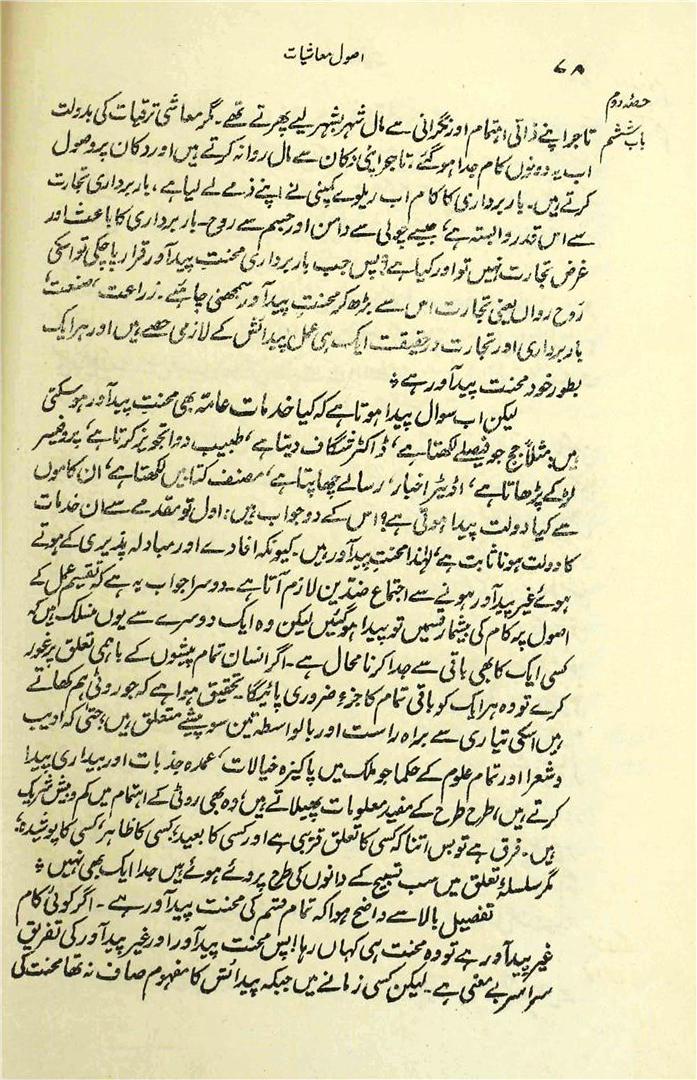 ۷۸
اصول معاشیات
حصہ دوم
باب ششم
تاجر اپنے ذاتی اہتمام اور نگرانی سے مال شہر بشہر لیے پھرتے تھے۔ مگر معاشی ترقیات کی بدولت
اب یہ دونوں کام جدا ہو گئے، تاجر اپنی دکان سے مال روانہ کرتے ہیں اور دکان پر وصول
کرتے ہیں۔ باربرداری کا کام اب ریلوے کمپنی نے اپنے ذمے لے لیا ہے، باربرداری تجارت
سے اس قدر وابستہ ہے، جیسے چولی سے دامن اور جسم سے روح۔ باربرداری کا باعث اور
غرض تجارت نہیں تو اور کیا ہے؟ پس جب باربرداری محنت پیدآور قرار پا چکی تو اسکی
روح رواں یعنی تجارت اس سے بڑھ کر محنت پیدآور سمجھنی چاہئیے۔ زراعت، صنعت،
باربرداری اور تجارت درحقیقت ایک ہی عمل پیدائش کے لازمی حصے ہیں اور ہر ایک
بطور خود محنت پیدآور ہے ؞
لیکن اب سوال پیدا ہوتا ہے کہ کیا خدمات عامتہ بھی محنت پیدآور ہو سکتی
ہیں: مثلاً جج جو فیصلے لکھتا ہے، ڈاکٹر شگاف دیتا ہے، طبیب دوا تجویز کرتا ہے، پروفیسر
لڑکے پڑھاتا ہے، اڈیٹر اخبار، رسالے چھاپتا ہے، مصنف کتابیں لکھتا ہے، ان کاموں
سے کیا دولت پیدا ہوتی ہے؟ اس کے دو جواب ہیں: اول تو مقدمے سے ان خدمات
کا دولت ہونا ثابت ہے، لہٰذا محنت پیدآور ہیں۔ کیونکہ افادے اور مبادلہ پذیری کے ہوتے
ہوئے غیر پیدآور ہونے سے اجتماع ضدین لازم آتا ہے۔ دوسرا جواب یہ ہے کہ تقسیم عمل کے
اصول پر کام کی بیشمار قسمیں تو پیدا ہو گئیں لیکن وہ ایک دوسرے سے یوں منسلک ہیں کہ
کسی ایک کا بھی باقی سے جدا کرنا محال ہے۔ اگر انسان تمام پیشوں کے باہمی تعلق پر غور
کرے تو وہ ہر ایک کو باقی تمام کا جزءِ ضروری پائیگا۔ تحقیق ہوا ہے کہ جو روٹی ہم کھاتے
ہیں اسکی تیاری سے براہ راست اور بالواسطہ تین سو پیشے متعلق ہیں، حتیٰ کہ ادیب
و شعرا اور تمام علوم کے حکما جو ملک میں پاکیزہ خیالات، عمدہ جذبات اور بیداری پیدا
کرتے ہیں، طرح طرح کے مفید معلومات پھیلاتے ہیں، وہ بھی روٹی کے اہتمام میں کم و بیش شریک
ہیں۔ فرق ہے تو بس اتنا کہ کسی کا تعلق قریبی ہے اور کسی کا بعید، کسی کا ظاہر، کسی کا پوشیدہ؛
مگر سلسلۂ تعلق میں سب تسبیح کے دانوں کی طرح پروئے ہوئے ہیں جدا ایک بھی نہیں ؞
تفصیل بالا سے واضح ہوا کہ تمام قسم کی محنت پیدآور ہے۔ اگر کوئی کام
غیر پیدآور ہے تو وہ محنت ہی کہاں رہا! پس محنت پیدآور اور غیر پیدآور کی تفریق
سراسر بے معنی ہے۔ لیکن کسی زمانے میں جبکہ پیدائش کا مفہوم صاف نہ تھا محنت کی